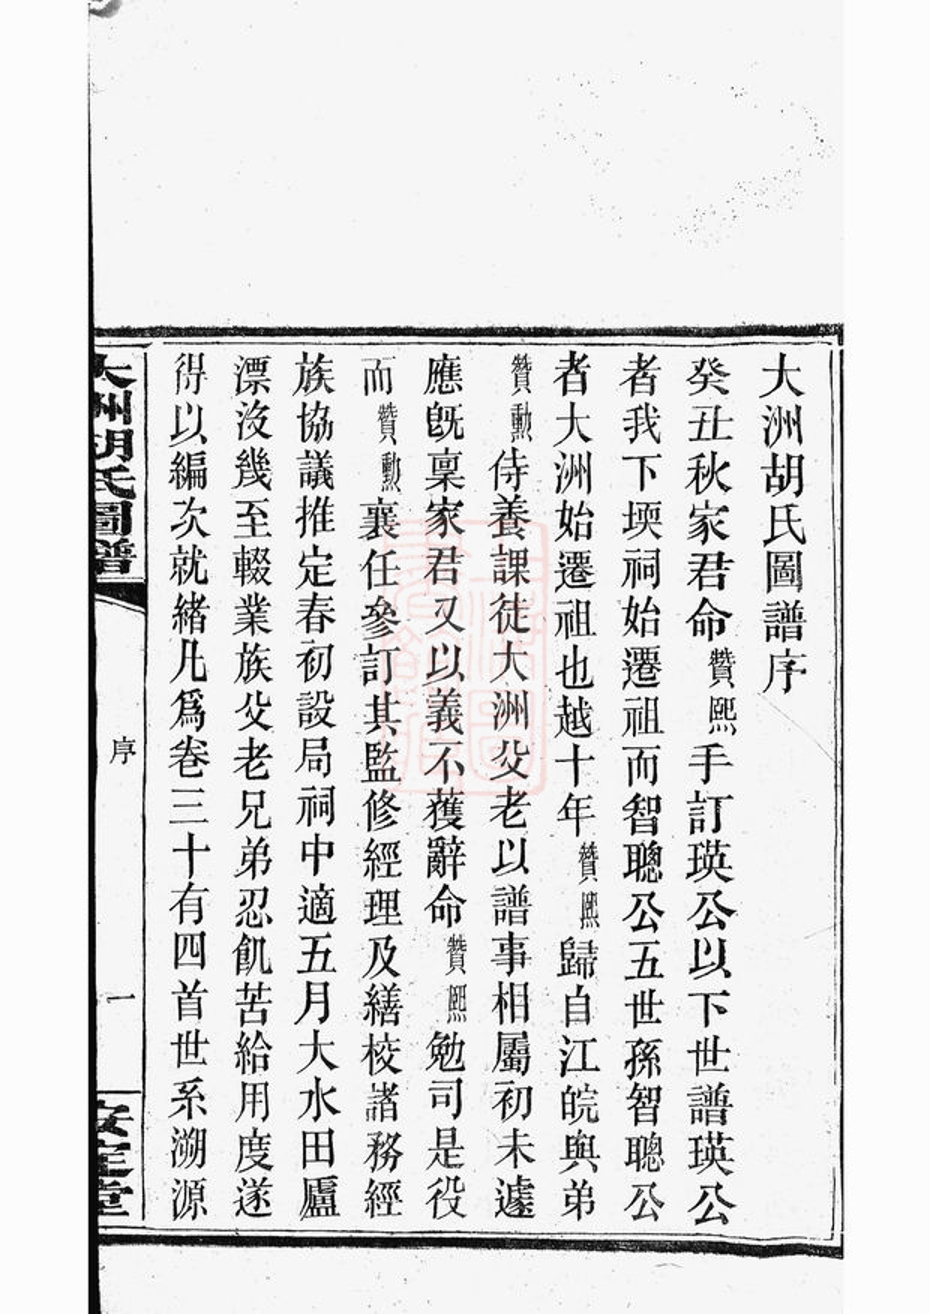 大洲胡氏圖譜序
癸丑秋家君命贊熙手訂瑛公以下世譜瑛公
者我下堧祠始遷祖而智聰公五世孫智聰公
者大洲始遷祖也越十年贊熙歸自江皖與弟
贊勳侍養課徒大洲父老以譜事相屬初未遽
應旣稟家君又以義不獲辭命贊熙勉司是役
而贊勳襄任參訂其監修經理及繕校諸務經
族協議推定春初設局祠中適五月大水田廬
漂沒幾至輟業族父老兄弟忍飢苦給用度遂
得以編次就緒凡爲卷三十有四首世系溯源
大洲胡氏圖譜
序
一
安定堂